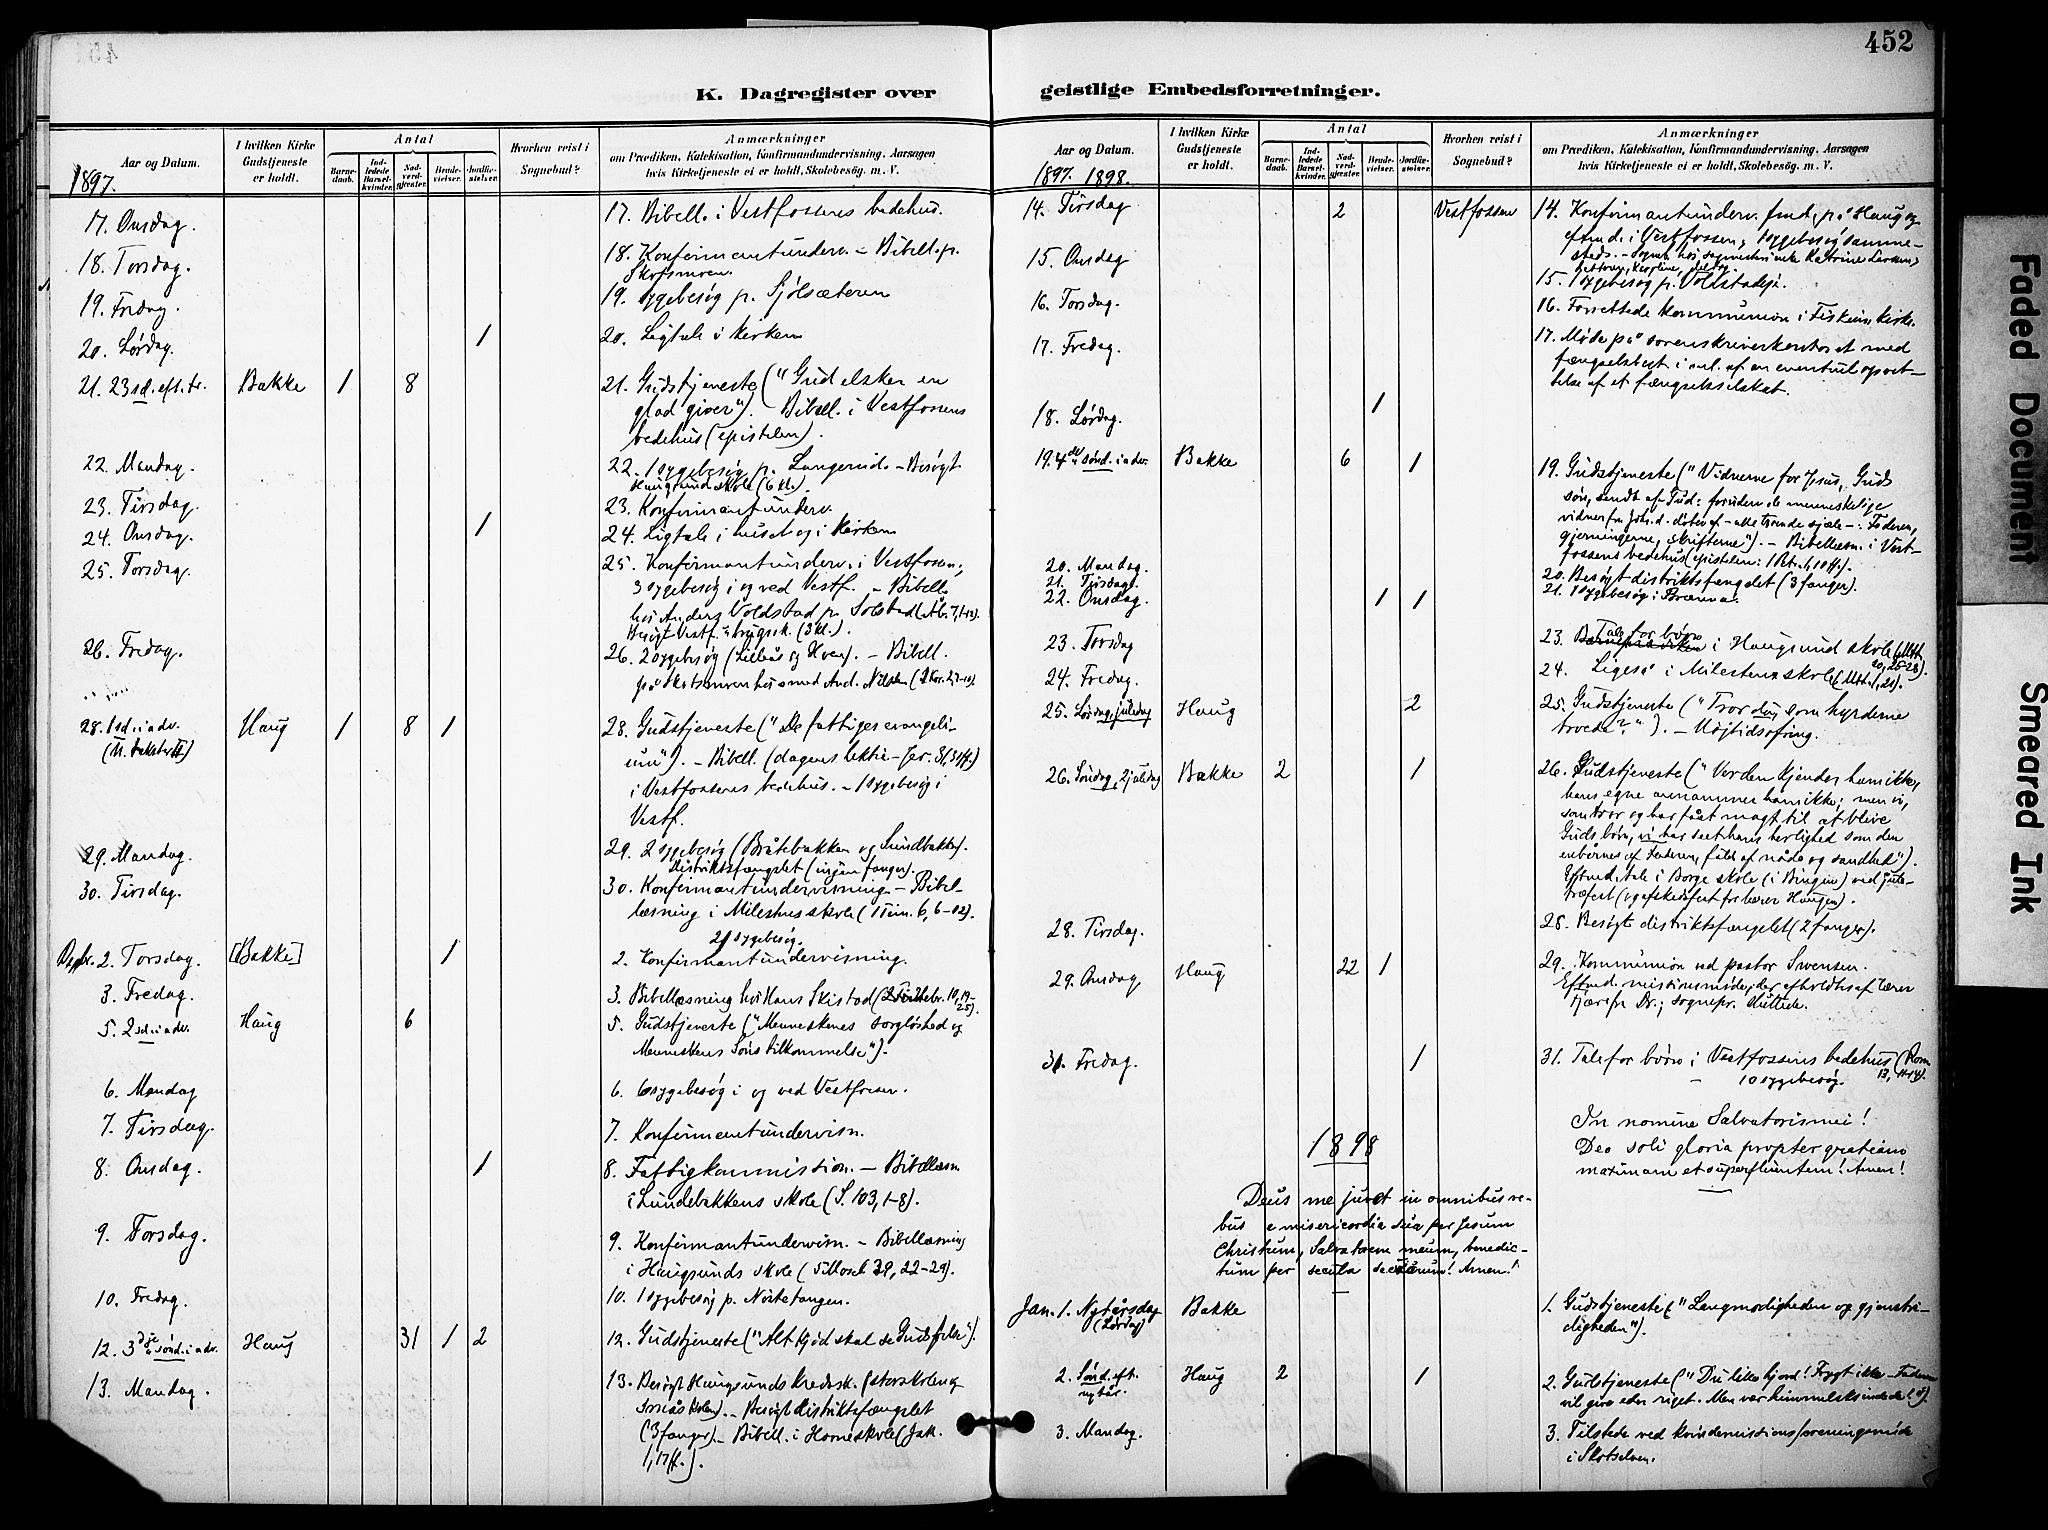 452
K. Dagregister over geistlige Embedsforretninger.
Aar og Datum.
1897.
I hvilken Kirke Gudstjeneste er holdt.
Antal
Barnedaab.
Indledede Barselkvinder.
Nadverdgjester.
Brudevielser.
Jordfæstelser.
Hvorhen reist i Sognebud?
Anmærkninger
om Prædiken, Katekisation, Konfirmandundervisning, Aarsagen
hvis Kirketjeneste ei er holdt, Skolebesøg m. V.
17. Onsdag. 17. Bibell. i Vestfossens bedehus.
18. Torsdag. 18. Konfirmantunderv. – Bibell. p.
Skotsmoen.
19. Fredag. 19. sygebesøg p.
20. Lørdag. 1 20. Ligtale i kirken
21. 23 sd. eft. tr. Bakke 1 8 21. Gudstjeneste ("Gud elsker en
glad giver"). Bibell. i Vestfossens
bedehus (epistelen).
22. Mandag. 22. 1 sygebesøg p. Langerud. – Besøgt
Haugsund skole (6 kl.).
23. Tirsdag. 23. Konfirmantunderv.
24. Onsdag. 1 24. Ligtale i huset og i kirken
25. Torsdag. 25. Konfirmantunderv. i Vestfossen;
3 sygebesøg i og ved Vestf. – Bibell.
hos Anders Voldstad p. Solstad (Åb. 7,
Besøgt Vestf. brugssk. (3 kl.).
26. Fredag. 26. 2 sygebesøg (Lilleås og Hven). – Bibell.
på Skotsmoen hos med And. Nilsen
28. 1 sd. i adv.
(n. tekster II) Haug 1 8 1 28. Gudstjeneste ("De fattiges evangeli-
um"). – Bibell. (dagens lektie – Jer. 31, 31 ff.)
i Vestfossens bedehus. – 1 sygebesøg i
Vestf.
29. Mandag. 29. 2 sygebesøg (Bråtebakken og Lundbakken).
Distriktsfængslet (ingen fanger).
30. Tirsdag. 30. Konfirmantundervisning. – Bibel-
læsning i Milesteens skole (1 Tim. 6, 6–12).
21 sygebesøg.
Dezbr. 2. Torsdag. [Bakke] 1 2. Konfirmantundervisning.
3. Fredag. 3. Bibellæsning hos Hans Skistad (Hebr. 10, 19–
25).
5. 2 sd. i adv. Haug 6 5. Gudstjeneste ("Menneskenes sorgløshed og
Menneskens Søns tilkommelse").
6. Mandag 6. 6 sygebesøg i og ved Vestfossen.
7. Tirsdag. 7. Konfirmantundervisn.
8. Onsdag. 1 8. Fattigkommission. – Bibellæsn.
i Lundebakkens skole (S. 103, 1–8).
9. Torsdag. 9. Konfirmantundervisn. – Bibellæsning
i Haugsunds skole (5 Moseb 39, 22–29).
10. Fredag. 10. 1 sygebesøg p. Nøstetangen.
12. 3dje sønd. i adv. Haug 31 1 2 12. Gudstjeneste ("Alt kjød skal se Guds frelse").
13. Mandag. 13. Besøgt Haugsunds kredssk. (storskolen og
småskolen). – Besøgt distriktsfængslet
(3 fanger). – Bibell. i Horne skole (Jak.
1, 17 ff.).
Aar og Datum.
1897. 1898.
I hvilken Kirke Gudstjeneste er holdt.
Antal
Barnedaab.
Indledede Barselkvinder.
Nadverdgjester.
Brudevielser.
Jordfæstelser.
Hvorhen reist i Sognebud?
Anmærkninger
om Prædiken, Katekisation, Konfirmandundervisning, Aarsagen
hvis Kirketjeneste ei er holdt, Skolebesøg m. V.
14. Tirsdag 2 Vestfossen 14. Konfirmantunderv. fmd. på Haug og
eftmd. i Vestfossen; 1 sygebesøg samme-
steds. –
15. Onsdag 15. 1 sygebesøg p. Voldstadeje.
16. Torsdag. 16. Forrettede kommunion i Fiskum kirke.
17. Fredag. 17. Møde på sorenskriverkontoret med
fængselsbest. i anl. af en eventuel opret-
telse af et fængselsselskab.
18. Lørdag. 1
19. 4de sønd. i adv. Bakke 6 1 19. Gudstjeneste ("Vidnerne for Jesus, Guds
søn, sendt af Gud: foruden de menneskelige
vidner fra Joh. d. døber af – alle troende sjæle –: Faderen,
gjerningerne, skrifterne"). – Bibellæsn. i Vest-
fossens bedehus (epistelen: 1 Pet. 1, 10 ff.).
20. Mandag. 20. Besøgt distriktsfængslet (3 fanger).
21. Tirsdag. 21. 1 sygebesøg i
22. Onsdag. 1 1
23. Torsdag 23. Tale for børn i Haugsund skole (Mtt.
20, 25–28).
24. Fredag. 24. Ligeså i Milesteens skole (Mtt. 1, 21).
25. Lørdag, juledag Haug 2 25. Gudstjeneste ("Tror du, som hyrderne
troede?"). – Højtidsofring.
26. Søndag, 2 juledag Bakke 2 1 26. Gudstjeneste ("Verden kjender ham ikke,
hans egne annammer ham ikke; men vi,
som tror og har fået magt til at blive
Guds børn, vi har seet hans herlighed som den
enbårnes af Faderen, fuld af nåde og sandhed").
Eftmd. tale i Borge skole (i Bingen) ved jule-
træfest (og afskedsfest for lærer Haugen).
28. Tirsdag. 28. Besøgte distriktsfængslet (2 fanger).
29. Onsdag, Haug 22 1 29. Kommunion ved pastor Svensen.
Eftmd. missionsmøde, der afholdtes af lærer
Fjære fra Dr.; sognepr. deltede.
31. Fredag. 1 31. Tale for børn i Vestfossens bedehus (Rom.
13, 11–14).
– 10 sygebesøg.
In nomine Salvatoris mei!
1898
Deo soli gloria propter gratiam
maximam et superfluentem! Amen!
Deus me juvet in omnibus re-
bus e misericordia sua per Jesum
Christum, Salvatorem meum, benedic-
tum per secula seculorum! Amen!
Jan. 1. Nytårsdag
(Lørdag) Bakke 1. Gudstjeneste ("Langmodigheden og gjenstri-
digheden").
2. Sønd. eft.
nytår. Haug 2 1 2. Gudstjeneste ("Du lille hjord! Frygt ikke – Faderen
vil give eder riget. Men vær himmelsksindede!").
3. Mandag. 3. Tilstede ved kvindemissionsforeningsmøde
i Skotselven.
Faded Document
Smeared Ink